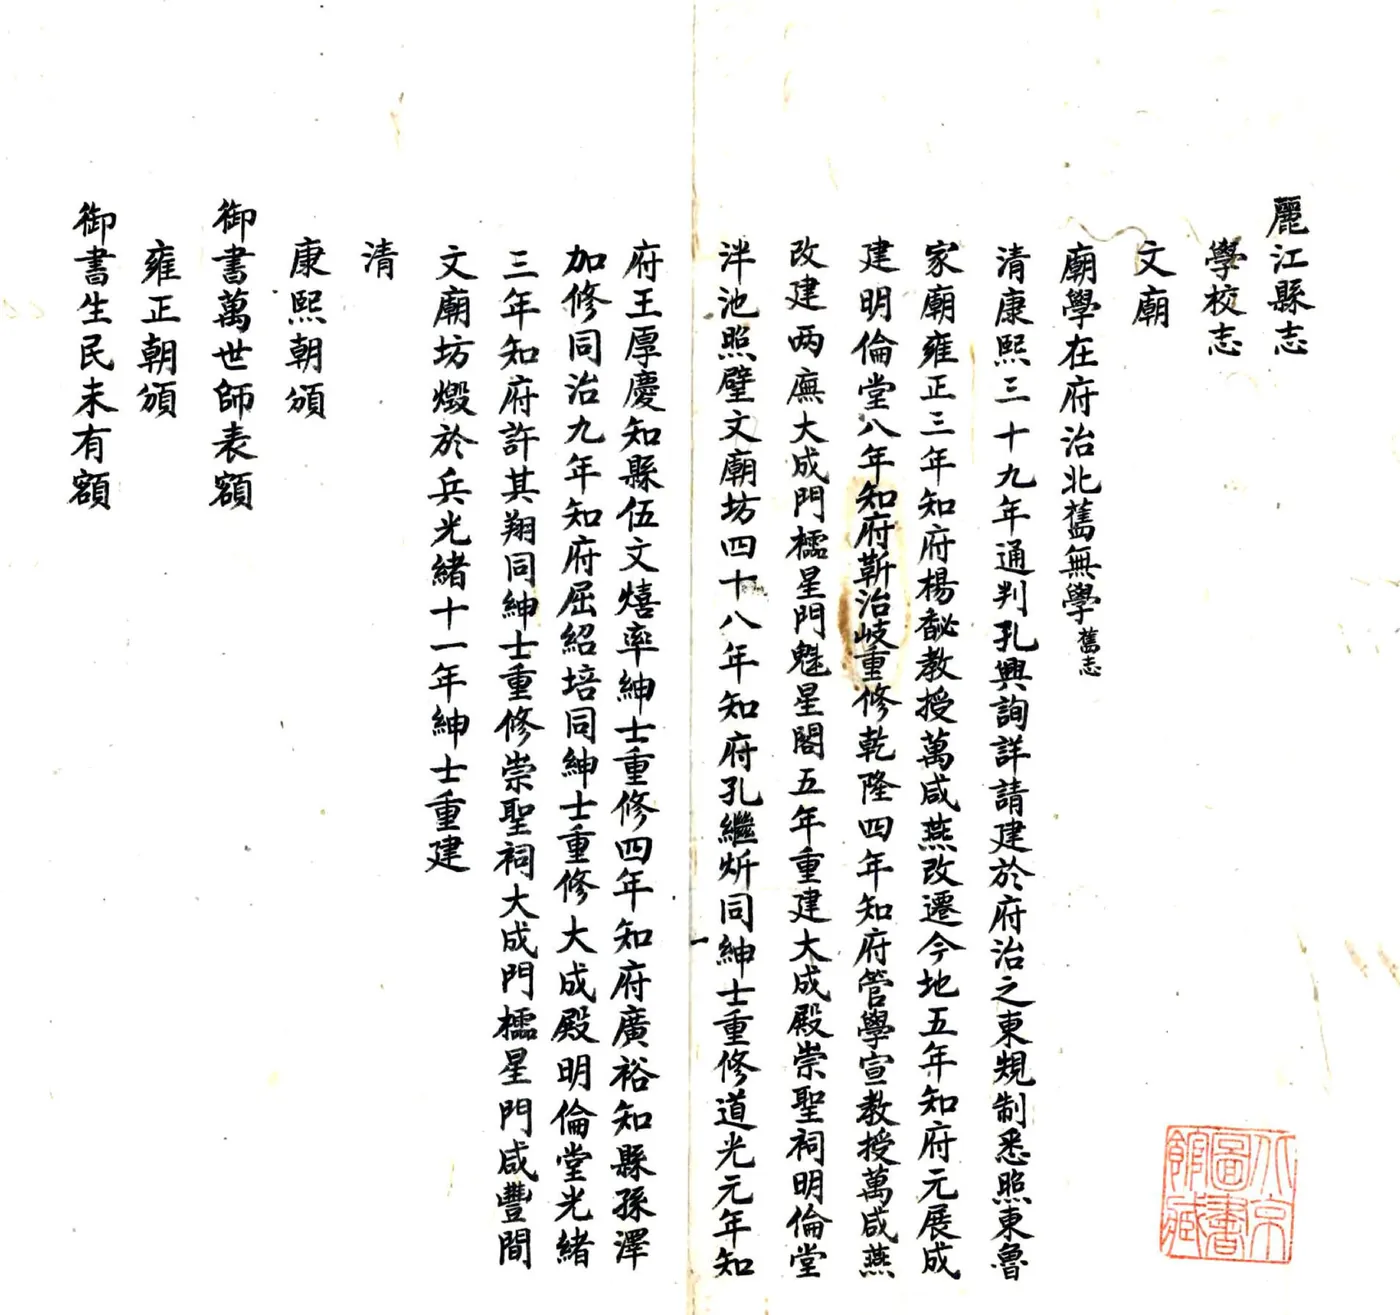 麗江縣志
學校志
文廟
廟學在府治北舊無學舊志
清康熙三十九年通判孔興詢詳請建於府治之東規制悉照東魯
家廟雍正三年知府楊馝教授萬咸燕改遷今地五年知府元展成
建明倫堂八年知府靳治岐重修乾隆四年知府管學宣教授萬咸燕
改建两廡大成門櫺星門魁星閣五年重建大成殿崇聖祠明倫堂
泮池照壁文廟坊四十八年知府孔繼炘同紳士重修道光元年知
府王厚慶知縣伍文熺率紳士重修四年知府廣裕知縣孫澤
加修同治九年知府屈紹培同紳士重修大成殿明倫堂光緒
三年知府許其翔同紳士重修崇聖祠大成門櫺星門咸豐間
文廟坊燬於兵光緒十一年紳士重建
清
康熙朝頒
御書萬世師表額
雍正朝頒
御書生民未有額
北京
圖書
館藏